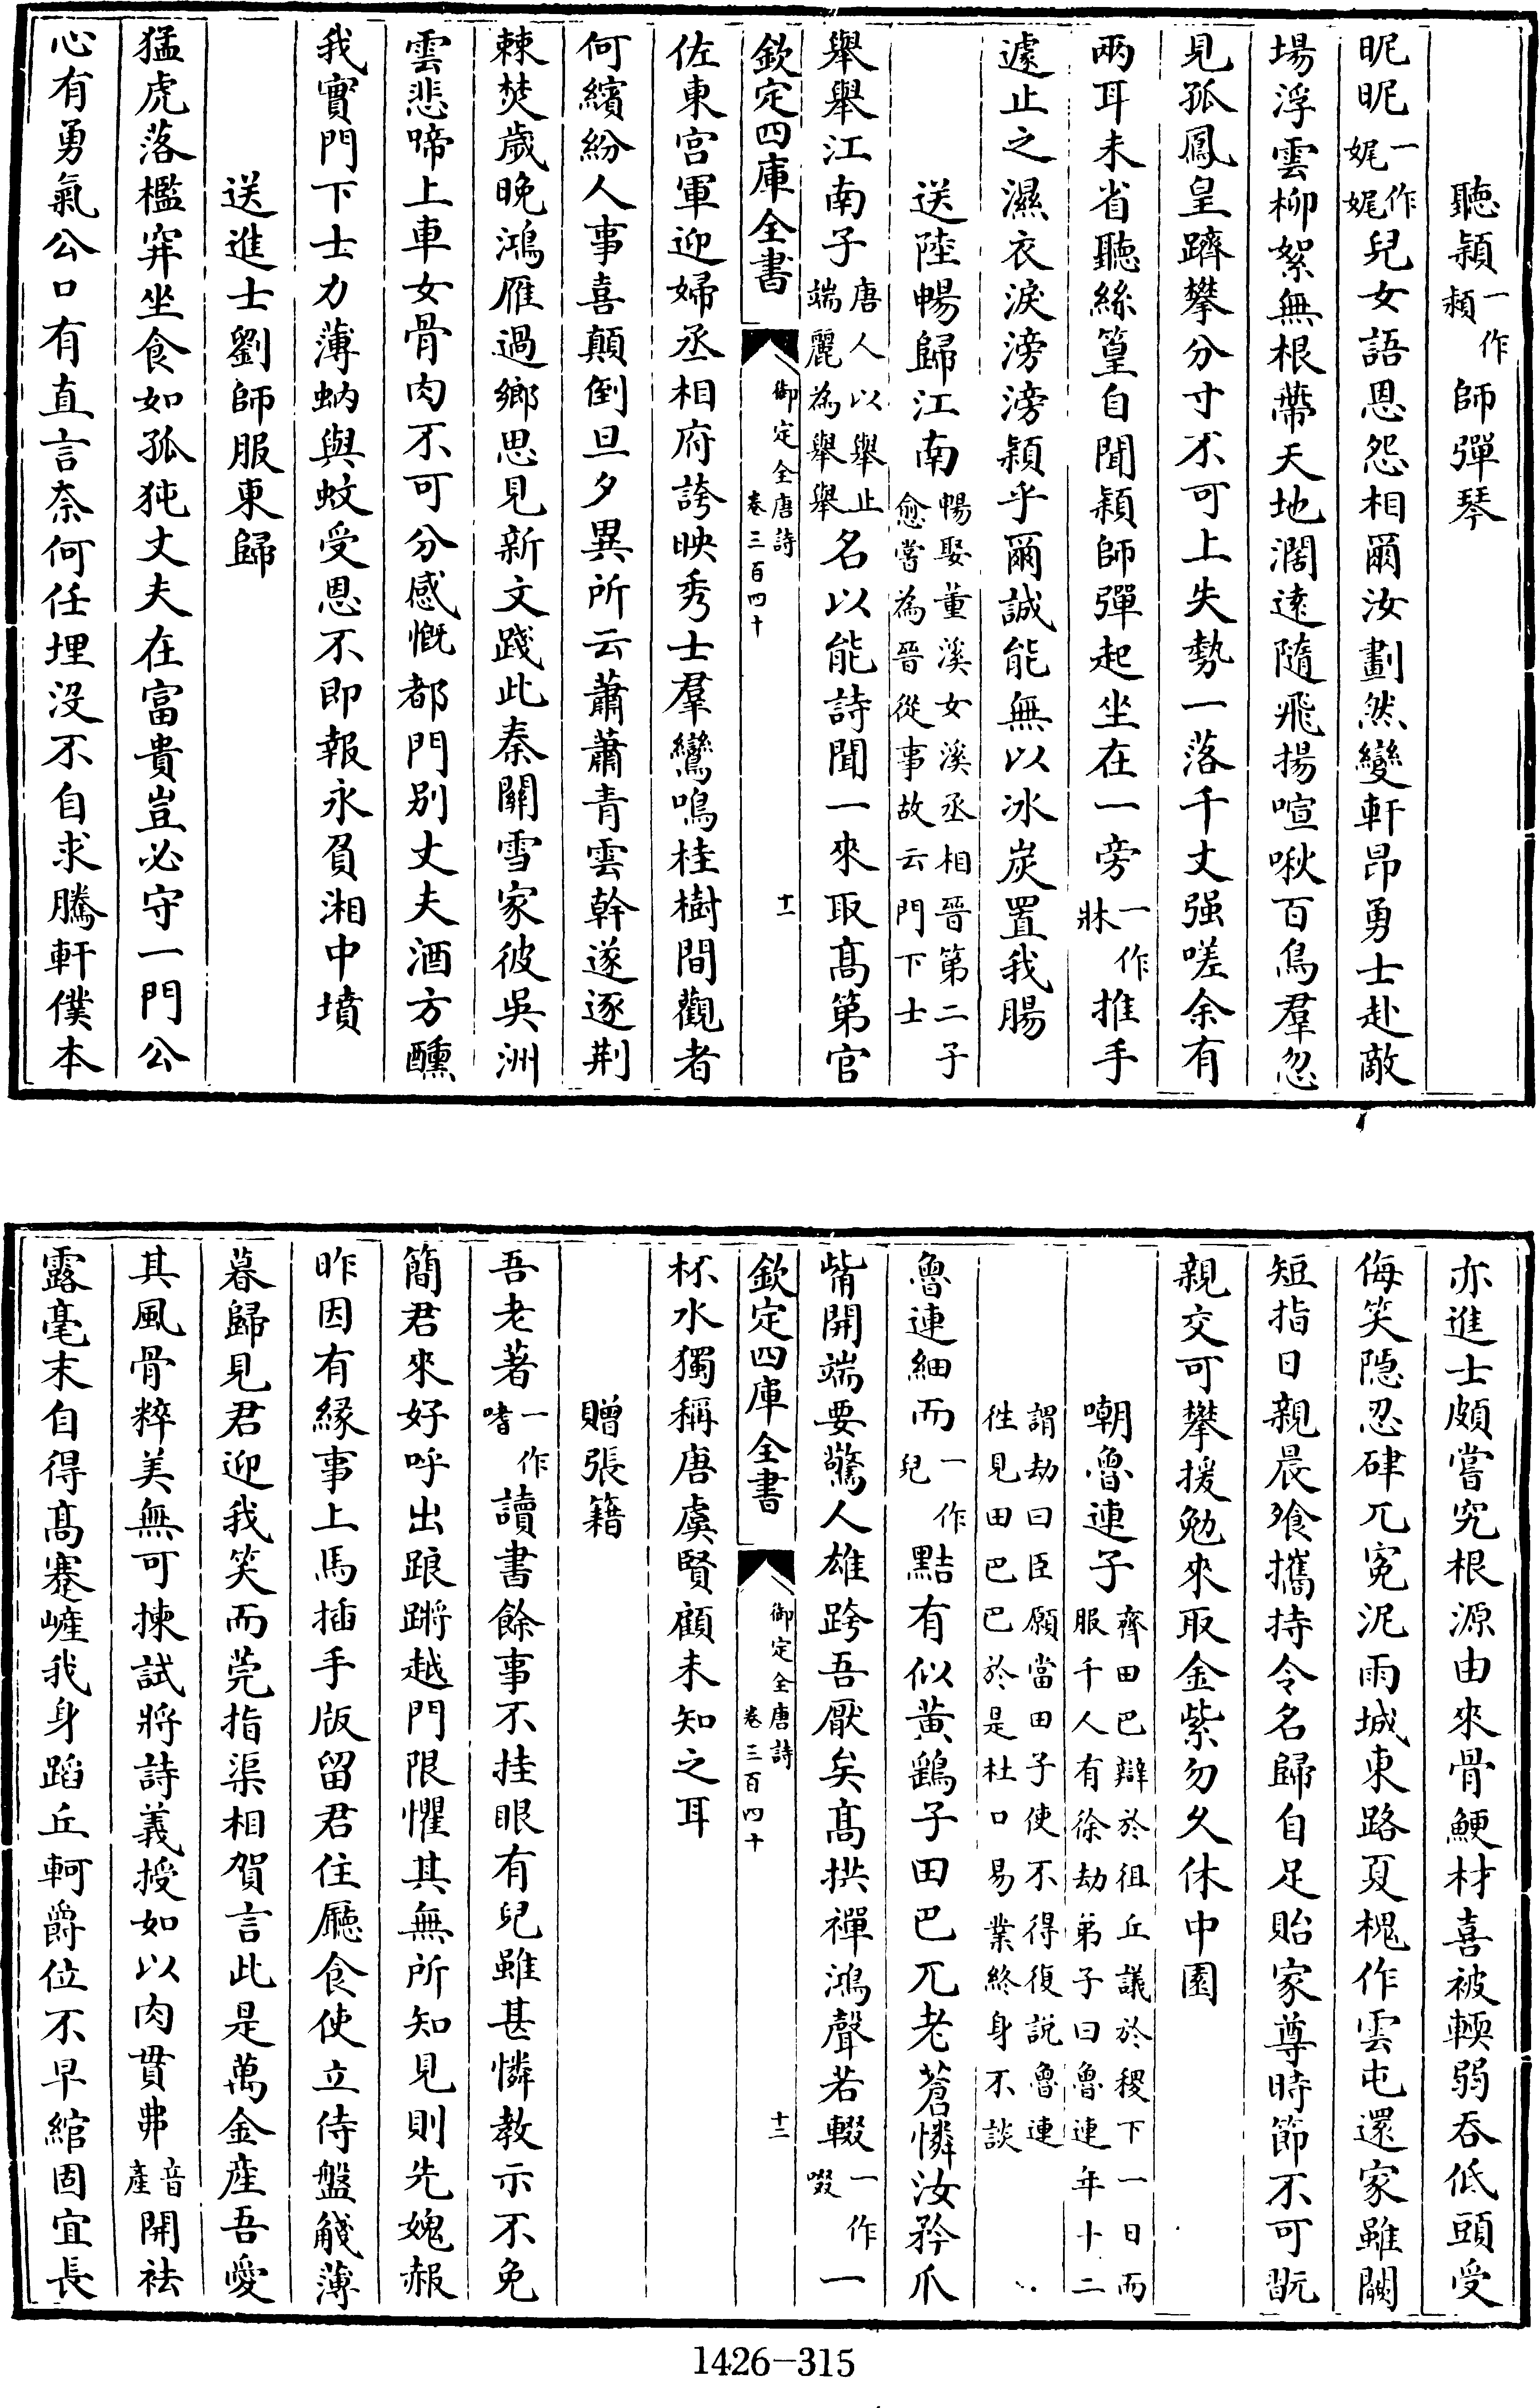 聽穎一作頻師彈琴
昵昵一作妮妮兒女語恩怨相爾汝劃然變軒昂勇士赴敵
場浮雲柳絮無根蔕天地濶逺隨飛揚喧啾百鳥羣忽
見孤鳳皇躋攀分寸不可上失勢一落千丈强嗟余有
兩耳未省聽絲篁自聞穎師彈起坐在一旁一作牀推手
遽止之濕衣淚滂滂穎乎爾誠能無以冰炭置我腸
送陸暢歸江南暢娶董溪女溪丞相晉第二子愈嘗為晉從事故云門下士
舉舉江南子唐人以舉止端麗為舉舉名以能詩聞一來取髙第官
欽定四庫全書 御定全唐詩 卷三百四十 十一
佐東宫軍迎婦丞相府誇映秀士羣鸞鳴桂樹間觀者
何繽紛人事喜顛倒旦夕異所云蕭蕭青雲幹遂逐荆
棘焚歲晚鴻雁過鄉思見新文踐此秦關雪家彼吳洲
雲悲啼上車女骨肉不可分感慨都門别丈夫酒方醺
我實門下士力薄蚋與蚊受恩不即報永負湘中墳
送進士劉師服東歸
猛虎落檻穽坐食如孤㹠丈夫在富貴豈必守一門公
心有勇氣公口有直言奈何任埋没不自求騰軒僕本
亦進士頗嘗究根源由來骨鯁材喜被輭弱吞低頭受
侮笑隠忍硉兀寃泥雨城東路夏槐作雲屯還家雖闕
短指日親晨飱攜持令名歸自足貽家尊時節不可翫
親交可攀援勉來取金紫勿久休中園
嘲魯連子齊田巴辯於徂丘議於稷下一日而服千人有徐劫弟子曰魯連年十二
謂劫曰臣願當田子使不得復說魯連徃見田巴巴於是杜口易業終身不談
魯連細而一作兒黠有似黄鷂子田巴兀老蒼憐汝矜爪
觜開端要驚人雄跨吾厭矣髙拱禪鴻聲若輟一作啜一
欽定四庫全書 御定全唐詩 卷三百四十 十二
杯水獨稱唐虞賢顧未知之耳
贈張籍
吾老著一作嗜讀書餘事不挂眼有兒雖甚憐教示不免
簡君來好呼出踉蹡越門限懼其無所知見則先媿赧
昨因有緣事上馬插手版留君住廳食使立侍盤艖薄
暮歸見君迎我笑而莞指渠相賀言此是萬金産吾愛
其風骨粹美無可揀試將詩義授如以肉貫弗音產開袪
露毫末自得髙蹇嵼我身蹈丘軻爵位不早綰固宜長
1426-315